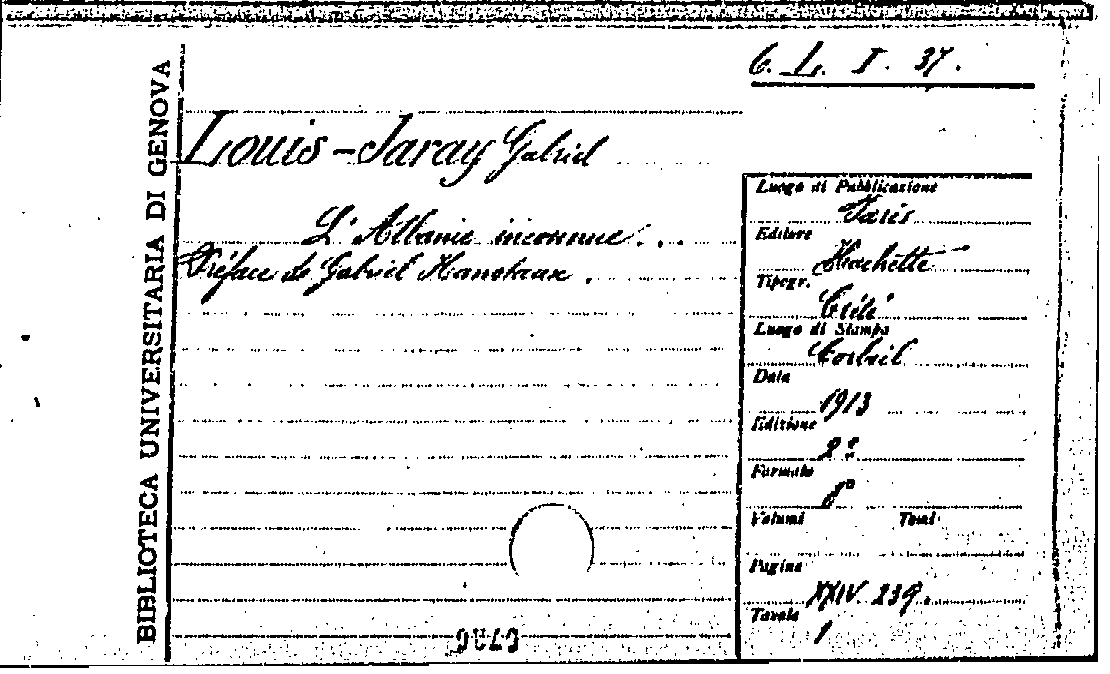 BIBLIOTECA UNIVERSITARIA DI GENOVA
6. L. I. 37.
Louis-Jaray Gabriel
L'Albanie inconnue...
Préface de Gabriel Hanotaux.
Luogo di Pubblicazione
Paris
Editore
Hachette
Tipogr.
Crété
Luogo di Stampa
Corbeil
Data
1913
Edizione
2ª
Formato
8°
Volumi Tomi
Pagine
XXIV 239.
Tavole
1